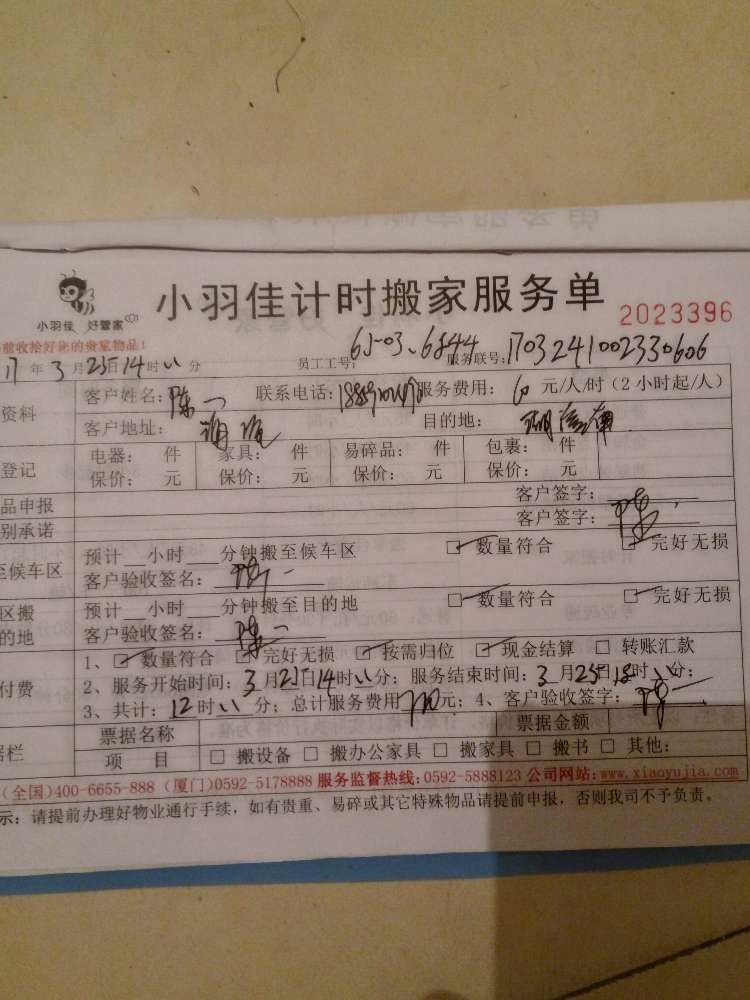 小羽佳计时搬家服务单
小羽佳 好管家
2023396
前收拾好您的贵重物品!
17年3月25日14时 分 员工工号:65-03、6844 服务联号:1703241002330606
资料 客户姓名:陈一 联系电话: 服务费用:60元/人/时(2小时起/人)
客户地址: 目的地:
登记 电器: 件 家具: 件 易碎品: 件 包裹: 件
保价: 元 保价: 元 保价: 元 保价: 元
品申报 客户签字:
别承诺 客户签字:陈一
至候车区 预计 小时 分钟搬至候车区 ☑数量符合 ☑完好无损
客户验收签名:陈一
区搬 预计 小时 分钟搬至目的地 ☑数量符合 ☑完好无损
的地 客户验收签名:陈一
1、☑数量符合 ☑完好无损 ☑按需归位 ☑现金结算 □转账汇款
付费 2、服务开始时间:3月25日14时 分;服务结束时间:3月25日18时 分;
3、共计:12时 分;总计服务费用 元;4、客户验收签字:陈一
票据名称 票据金额
据栏 项 目 □搬设备 □搬办公家具 □搬家具 □搬书 □其他:
(全国)400-6655-888 (厦门)0592-5178888 服务监督热线:0592-5888123 公司网站:www.xiaoyujia.com
示:请提前办理好物业通行手续,如有贵重、易碎或其它特殊物品请提前申报,否则我司不予负责。